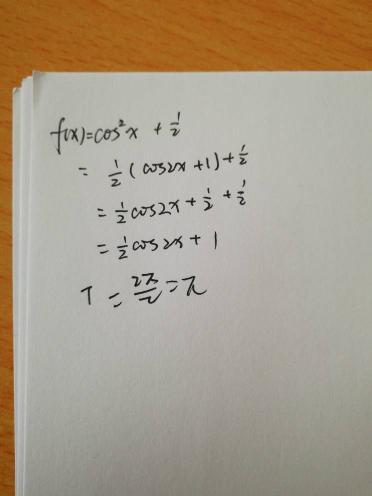 f(x)=cos²x + 1/2
= 1/2 (cos2x +1)+ 1/2
= 1/2 cos2x + 1/2 + 1/2
= 1/2 cos2x + 1
T = 2π/2 = π